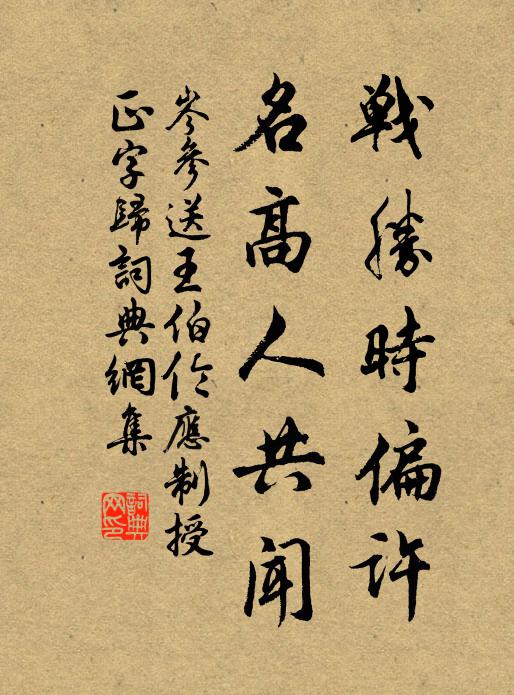 戦勝時偏許
名高人共聞
岑參送王伯伦應制授
正字歸詞典網集
詞典
网印